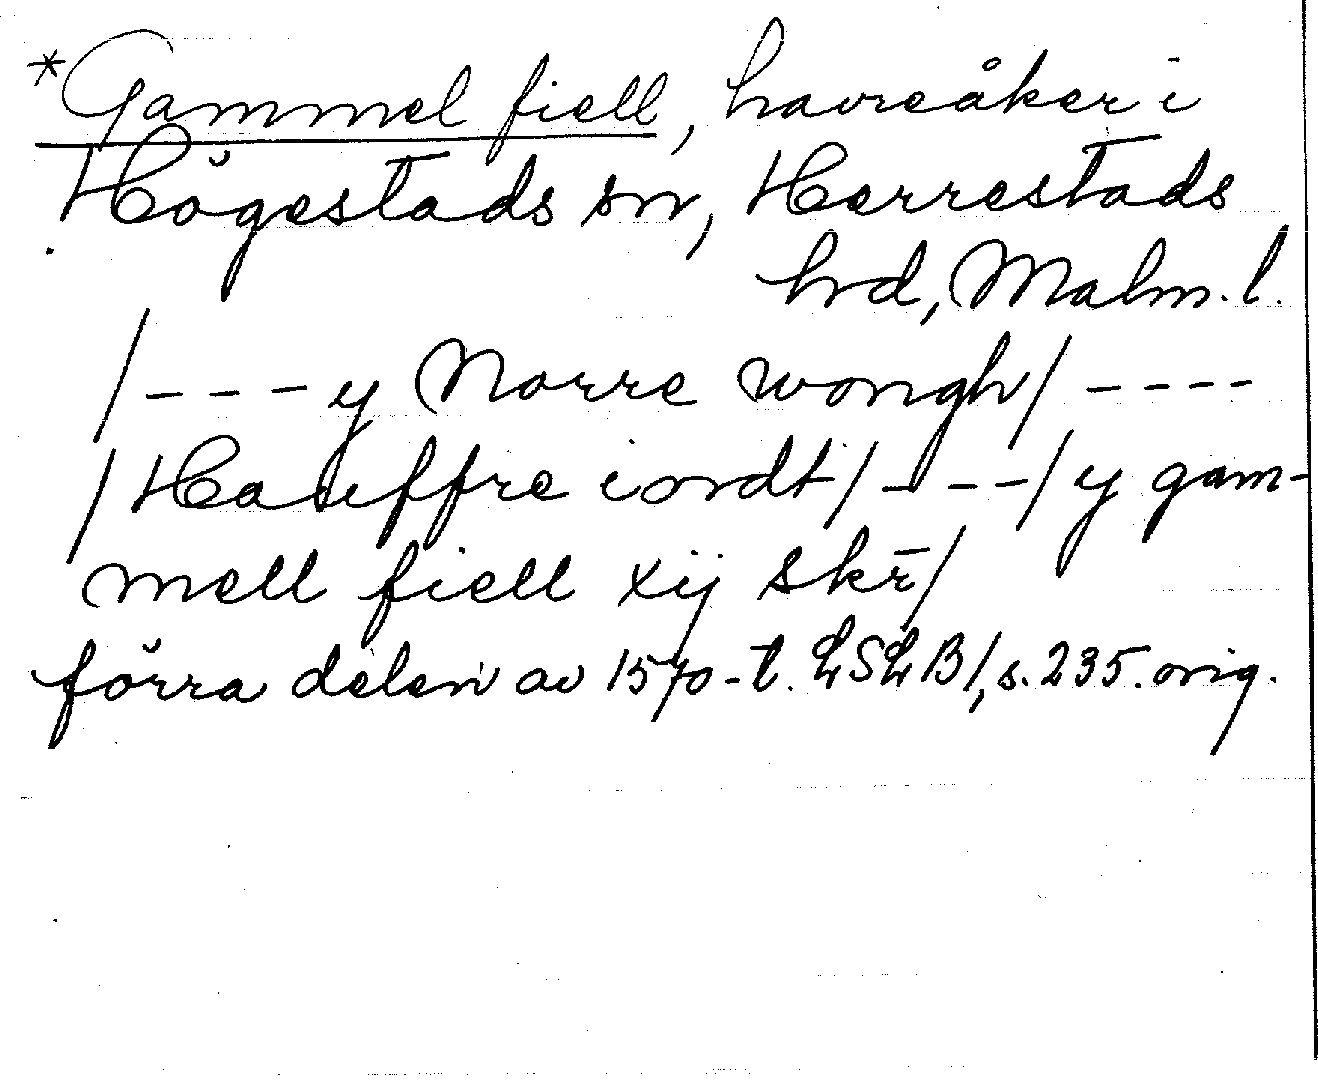 *Gammel fiell, havreåker i
Högestads sn, Herrestads
hd, Malm. l.
/---y Norre wongh/----
/Hauffre iordt/---/y gam-
mell fiell xij skr̄/
förra delen av 1570-t. LSLB/, s. 235. orig.